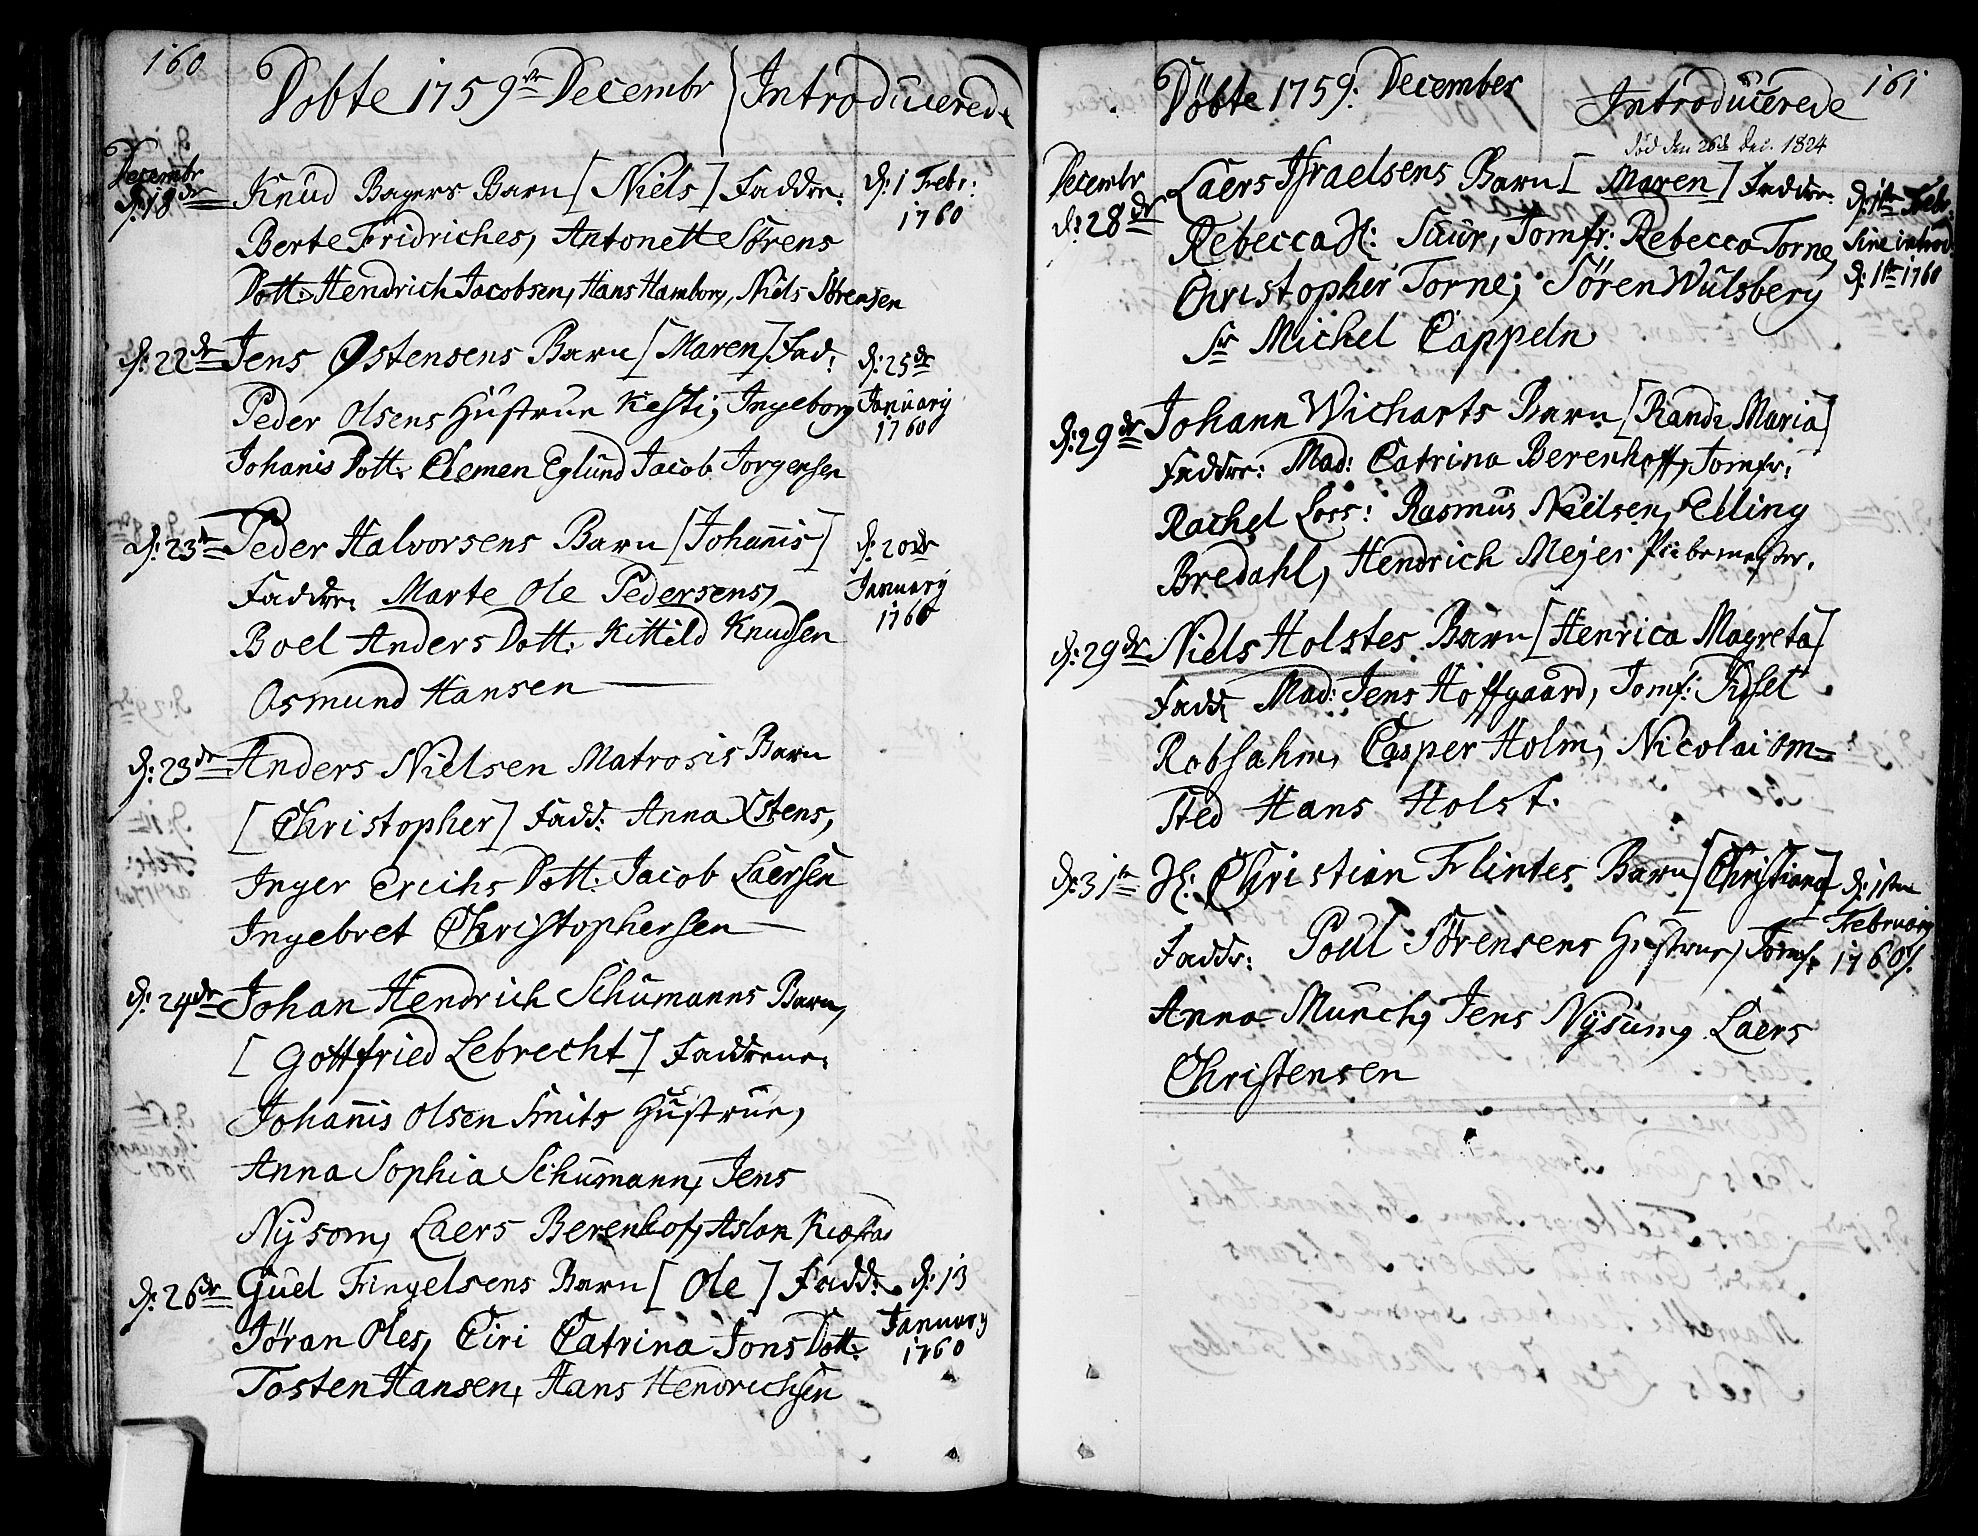 160
Døbte 1759 Decembr Introducerede
Decembr
d: 18de Knud Bagers Barn [Niels] Faddr: d: 1 Febr:
1760
Berte Fridriches, Antonett Sörens
Dott: Hendrich Jacobsen, Hans Hamborg, Niels Sörensen
d: 22de Jens Østensens Barn [Maren] Fad: d: 25de
Peder Olsens Hustrue Kesti, Ingeborg January
1760
Johanis Dott. Clemen Eglund Jacob Jorgensen
d: 23de Peder Halvorsens Barn [Johannis] d: 20de
Faddr. Marte Ole Pedersens, January
1760
Boel Anders Dott. Kittild Knudsen
Osmund Hansen
d: 23de Anders Nielsen Matrosis Barn
[Christopher] Fadd: Anna Ostens,
Inger Erichs Dott: Jacob Laersen
Ingebret Christophersen
d: 24de Johan Hendrich Schumanns Barn,
[Gottfried Lebrecht] Faddrene.
Johannis Olsen Smits Hustrue,
Anna Sophia Schumann, Jens
Nÿsom, Laers Berenhof, Aslon
d: 26de Guel Fingelsens Barn [Ole] Fadd: d: 13
Jöran Oles, Ciri Catrina Jons Dott: January
1760
Tosten Hansen, Hans Hendrichsen
161
Døbte 1759: December Introducerede
død den 26de Dec. 1824
Decembr
d: 28de Laers Israelsens Barn [Maren] Faddr. d: 1te Febr.
Rebecca H: Suur, Jomfr: Rebecca Torne, Sine introd.
Christopher Torne, Sören Wulsberg d: 1te 1760
Sr Michel Cappeln
d: 29de Johann Wicharts Barn [Randi Maria]
Faddr: Mad: Catrina Berenhoff, Jomfr:
Rachel Lors: Rasmus Nielsen, Elling
Bredahl, Hendrich Mejer Piibemester.
d: 29de Niels Holstes Barn [Henrica Magreta]
Fadd: Mad: Jens Hoffgaard, Jomf: Idsel
Robsahm, Casper Holm, Nicolai Om=
sted Hans Holst.
d: 31te H: Christian Flintes Barn [Christiana] d: 1sten
February
Faddr: Poul Sörensens Hustrue, Jomfr 1760
Anna Munch, Jens Nÿsum, Laers
Christensen